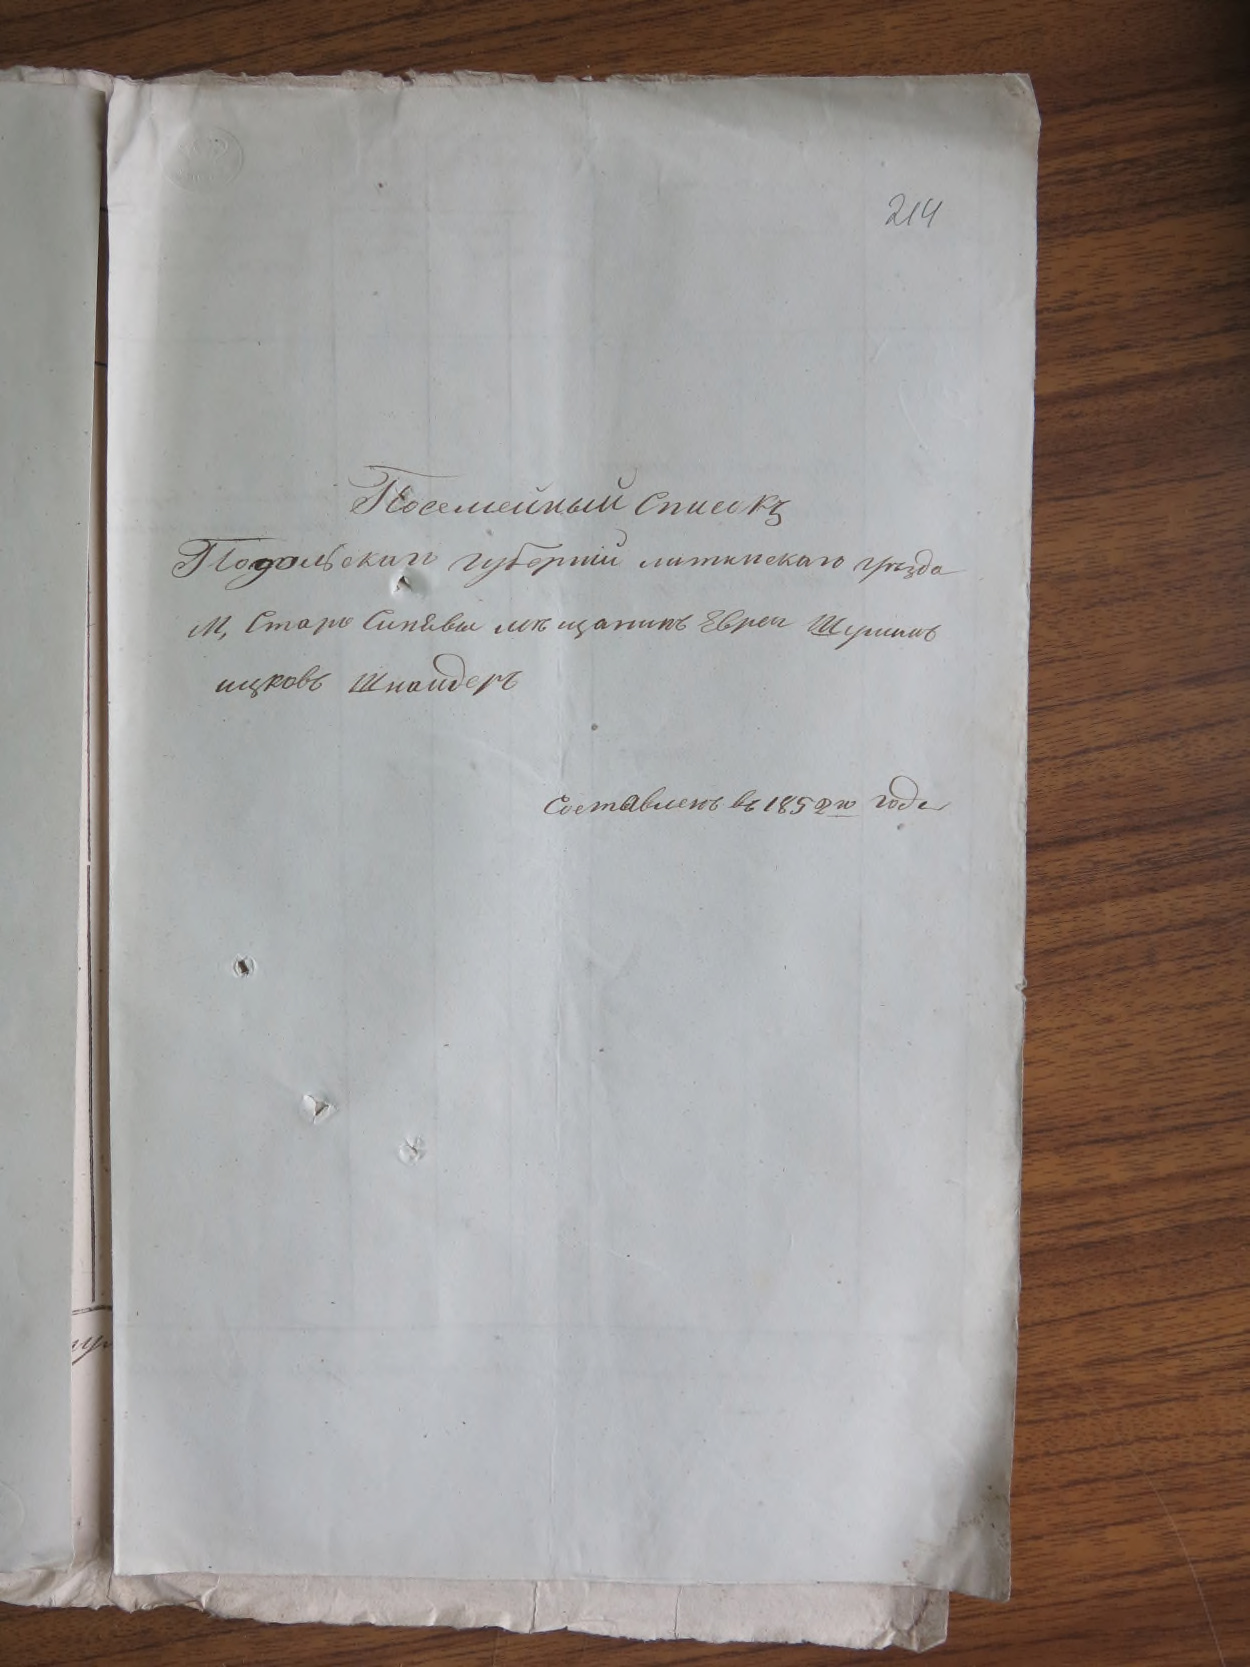 214
Посемейный Списокъ
Подольской губерніи литинскаго уѣзда
М, Старо Синявы мѣщанинъ Еврей
ицковъ Шнайдеръ
Составленъ въ 1852го года